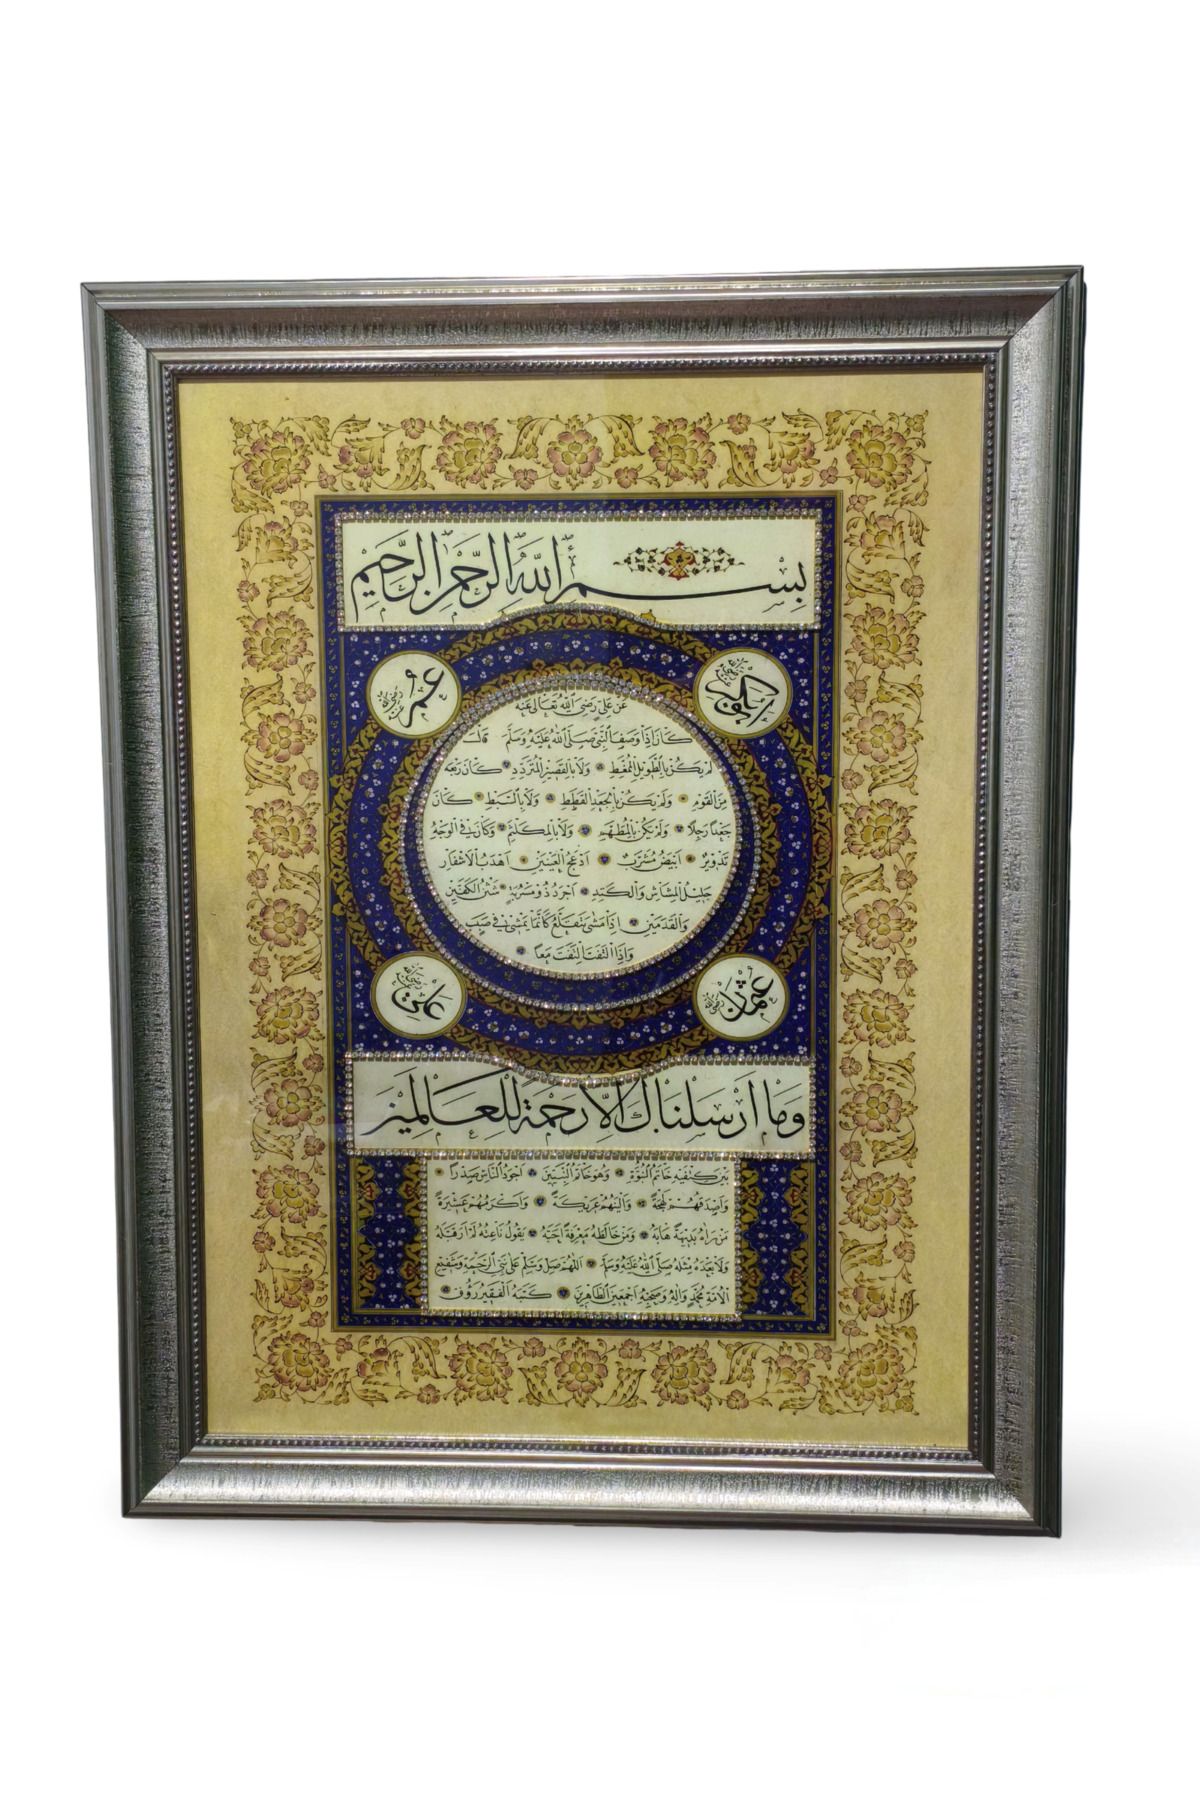 بِسْمِ اللهِ الرَّحْمٰنِ الرَّحِيمِ
ابوبكر رضى الله عنه
عُمَر رضى الله عنه
عَنْ عَلِىٍّ رَضِىَ اللهُ تَعَالٰى عَنْهُ
كَانَ اِذَا وَصَفَ النَّبِىَّ صَلَّى اللهُ عَلَيْهِ وَسَلَّمَ قَالَ
لَمْ يَكُنْ بِالطَّوِيلِ الْمُمَّغِطِ وَلَا بِالْقَصِيرِ الْمُتَرَدِّدِ كَانَ رَبْعَةً
مِنَ الْقَوْمِ وَلَمْ يَكُنْ بِالْجَعْدِ الْقَطَطِ وَلَا بِالسَّبِطِ كَانَ
جَعْدًا رَجِلًا وَلَمْ يَكُنْ بِالْمُطَهَّمِ وَلَا بِالْمُكَلْثَمِ وَكَانَ فِى الْوَجْهِ
تَدْوِيرٌ اَبْيَضُ مُشْرَبٌ اَدْعَجُ الْعَيْنَيْنِ اَهْدَبُ الْاَشْفَارِ
جَلِيلُ الْمُشَاشِ وَالْكَتَدِ اَجْرَدُ ذُو مَسْرُبَةٍ شَثْنُ الْكَفَّيْنِ
وَالْقَدَمَيْنِ اِذَا مَشٰى يَتَقَلَّعُ كَاَنَّمَا يَمْشِى فِى صَبَبٍ
وَاِذَا الْتَفَتَ الْتَفَتَ مَعًا
عُثْمٰان رضى الله عنه
عَلِىّ رضى الله عنه
وَمَا اَرْسَلْنَاكَ اِلَّا رَحْمَةً لِلْعَالَمِينَ
بَيْنَ كَتِفَيْهِ خَاتَمُ النُّبُوَّةِ وَهُوَ خَاتَمُ النَّبِيِّينَ اَجْوَدُ النَّاسِ صَدْرًا
وَاَصْدَقُهُمْ لَهْجَةً وَاَلْيَنُهُمْ عَرِيكَةً وَاَكْرَمُهُمْ عَشِيرَةً
مَنْ رَاٰهُ بَدِيهَةً هَابَهُ وَمَنْ خَالَطَهُ مَعْرِفَةً اَحَبَّهُ يَقُولُ نَاعِتُهُ لَمْ اَرَ قَبْلَهُ
وَلَا بَعْدَهُ مِثْلَهُ صَلَّى اللهُ عَلَيْهِ وَسَلَّمَ اَللّٰهُمَّ صَلِّ وَسَلِّمْ عَلٰى نَبِىِّ الرَّحْمَةِ وَشَفِيعِ
الْاُمَّةِ مُحَمَّدٍ وَاٰلِهِ وَصَحْبِهِ اَجْمَعِينَ الطَّاهِرِينَ كَتَبَهُ الْفَقِيرُ رَؤُف